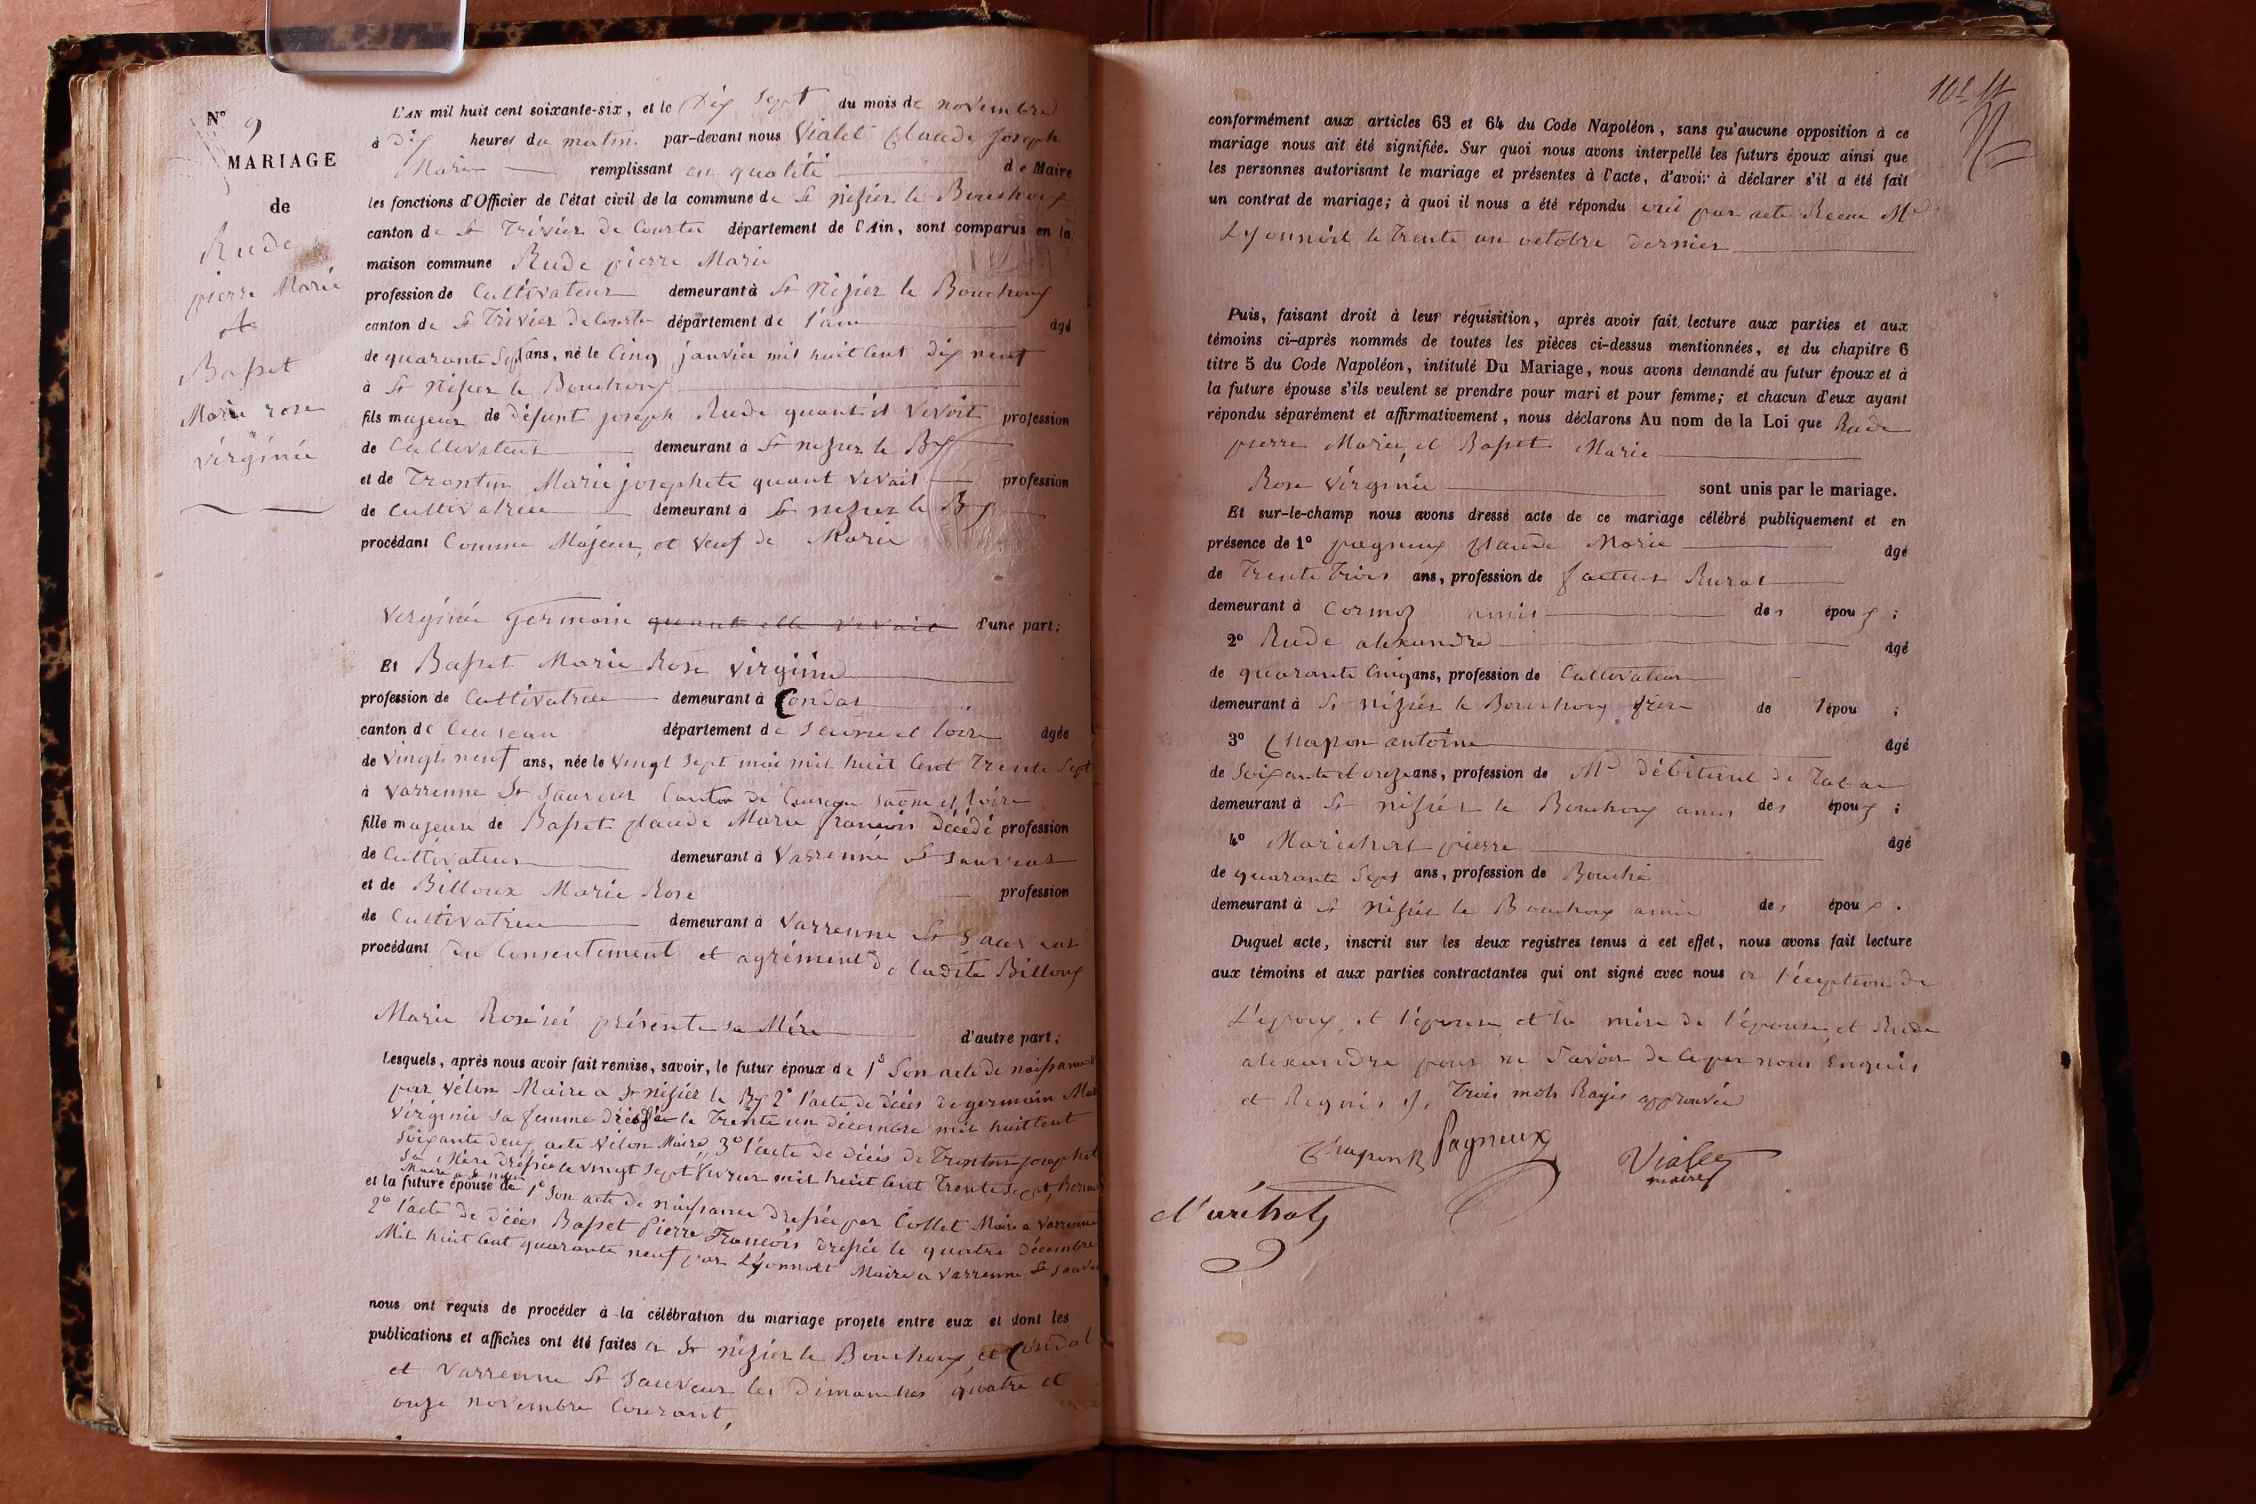 N° 9
MARIAGE
de
Rude
pierre Marie
et
Basset
Marie rose
virginie
L'AN mil huit cent soixante-six, et le Dix Sept du mois de novembre
à Dix heures du matin par-devant nous Vialet Claude Joseph
Marie remplissant en qualité de Maire
les fonctions d'Officier de l'état civil de la commune de St nizier le Bouchoux
canton de St Trivier de Courtes département de l'Ain, sont comparus en la
maison commune Rude pierre Marie
profession de Cultivateur demeurant à St Nizier le Bouchoux
canton de St Trivier de Courtes département de l'ain âgé
de quarante Sept ans, né le Cinq janvier mil huit Cent Dix neuf
à St Nizier le Bouchoux
fils majeur de défunt joseph Rude quant il Vivoit profession
de Cultivateur demeurant à St nizier le Bx
et de Trontin Marie josephete quant Vivait profession
de Cultivatrice demeurant à St nizier le Bx
procédant Comme Majeur, et Veuf de Marie
Virginie Germain quant elle vivait d'une part;
Et Basset Marie Rose virginie
profession de Cultivatrice demeurant à Condal
canton de Cuiseau département de Saone et loire âgée
de vingt neuf ans, née le vingt sept mai mil huit Cent Trente Sept
à Varrenne St Sauveur Canton de Cuiseau saône et loire
fille majeure de Basset Claude Marie francois Décédé profession
de Cultivateur demeurant à Varrenne St Sauveur
et de Billoux Marie Rose profession
de Cultivatrice demeurant à Varrenne St Sauveur
procédant du Consentement et agrément de ladite Billoux
Marie Rose ici présente sa Mère d'autre part;
Lesquels, après nous avoir fait remise, savoir, le futur époux de 1° Son acte de naissance
par Vélon Maire a St nizier le Bx 2° l'acte de décès de germain Marie
Virginie sa femme dressée le Trente un décembre mil huit Cent
Soixante deux acte Vélon Maire, 3° l'acte de décès de Trontin josephet
sa Mère dressée le vingt sept fevrier mil huit Cent Trente Sept
Maire a St nizier
et la future épouse de 1° Son acte de naissance dressée par Collet Maire a Varrenne
2° l'acte de décès Basset Pierre François dressée le quatre Décembre
Mil huit Cent quarante neuf par Lyonnois Maire a Varrenne St Sauve
nous ont requis de procéder à la célébration du mariage projeté entre eux et dont les
publications et affiches ont été faites a St nizier le Bouchoux et Condal
et Varrenne St Sauveur les Dimanches quatre et
onze novembre Courant,
conformément aux articles 63 et 64 du Code Napoléon, sans qu'aucune opposition à ce
mariage nous ait été signifiée. Sur quoi nous avons interpellé les futurs époux ainsi que
les personnes autorisant le mariage et présentes à l'acte, d'avoir à déclarer s'il a été fait
un contrat de mariage; à quoi il nous a été répondu oui par acte Recue Me
Lyonnois le Trente un octobre dernier
Puis, faisant droit à leur réquisition, après avoir fait lecture aux parties et aux
témoins ci-après nommés de toutes les pièces ci-dessus mentionnées, et du chapitre 6
titre 5 du Code Napoléon, intitulé Du Mariage, nous avons demandé au futur époux et à
la future épouse s'ils veulent se prendre pour mari et pour femme; et chacun d'eux ayant
répondu séparément et affirmativement, nous déclarons Au nom de la Loi que Rude
pierre Marie, et Basset Marie
Rose Virginie sont unis par le mariage.
Et sur-le-champ nous avons dressé acte de ce mariage célébré publiquement et en
présence de 1° pagneux Claude Marie âgé
de Trente Trois ans, profession de facteur Rural
demeurant à Cormoz amis des époux;
2° Rude alexandre âgé
de quarante Cinq ans, profession de Cultivateur
demeurant à St nizier le Bouchoux frère de l'épou;
3° Chapon antoine âgé
de Soixante et onze ans, profession de Md débitant de Tabac
demeurant à St nizier le Bouchoux amis des époux;
4° Marichat pierre âgé
de quarante Sept ans, profession de Bouché
demeurant à St nizier le Bouchoux amis des époux.
Duquel acte, inscrit sur les deux registres tenus à cet effet, nous avons fait lecture
aux témoins et aux parties contractantes qui ont signé avec nous a l'éxeption de
L'époux, et l'épouse et la mère de l'épouse et Rude
alexandre pour ne Savoir de Ce par nous Enquis
et Requis Trois mots Rayés approuvée
Chapon Pagneux Vialet
maire
Marichat